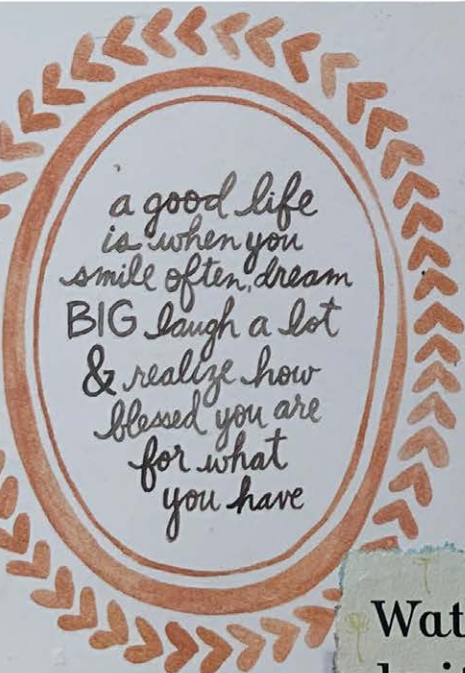 a good life
is when you
smile often, dream
BIG laugh a lot
& realize how
blessed you are
for what
you have
Wat